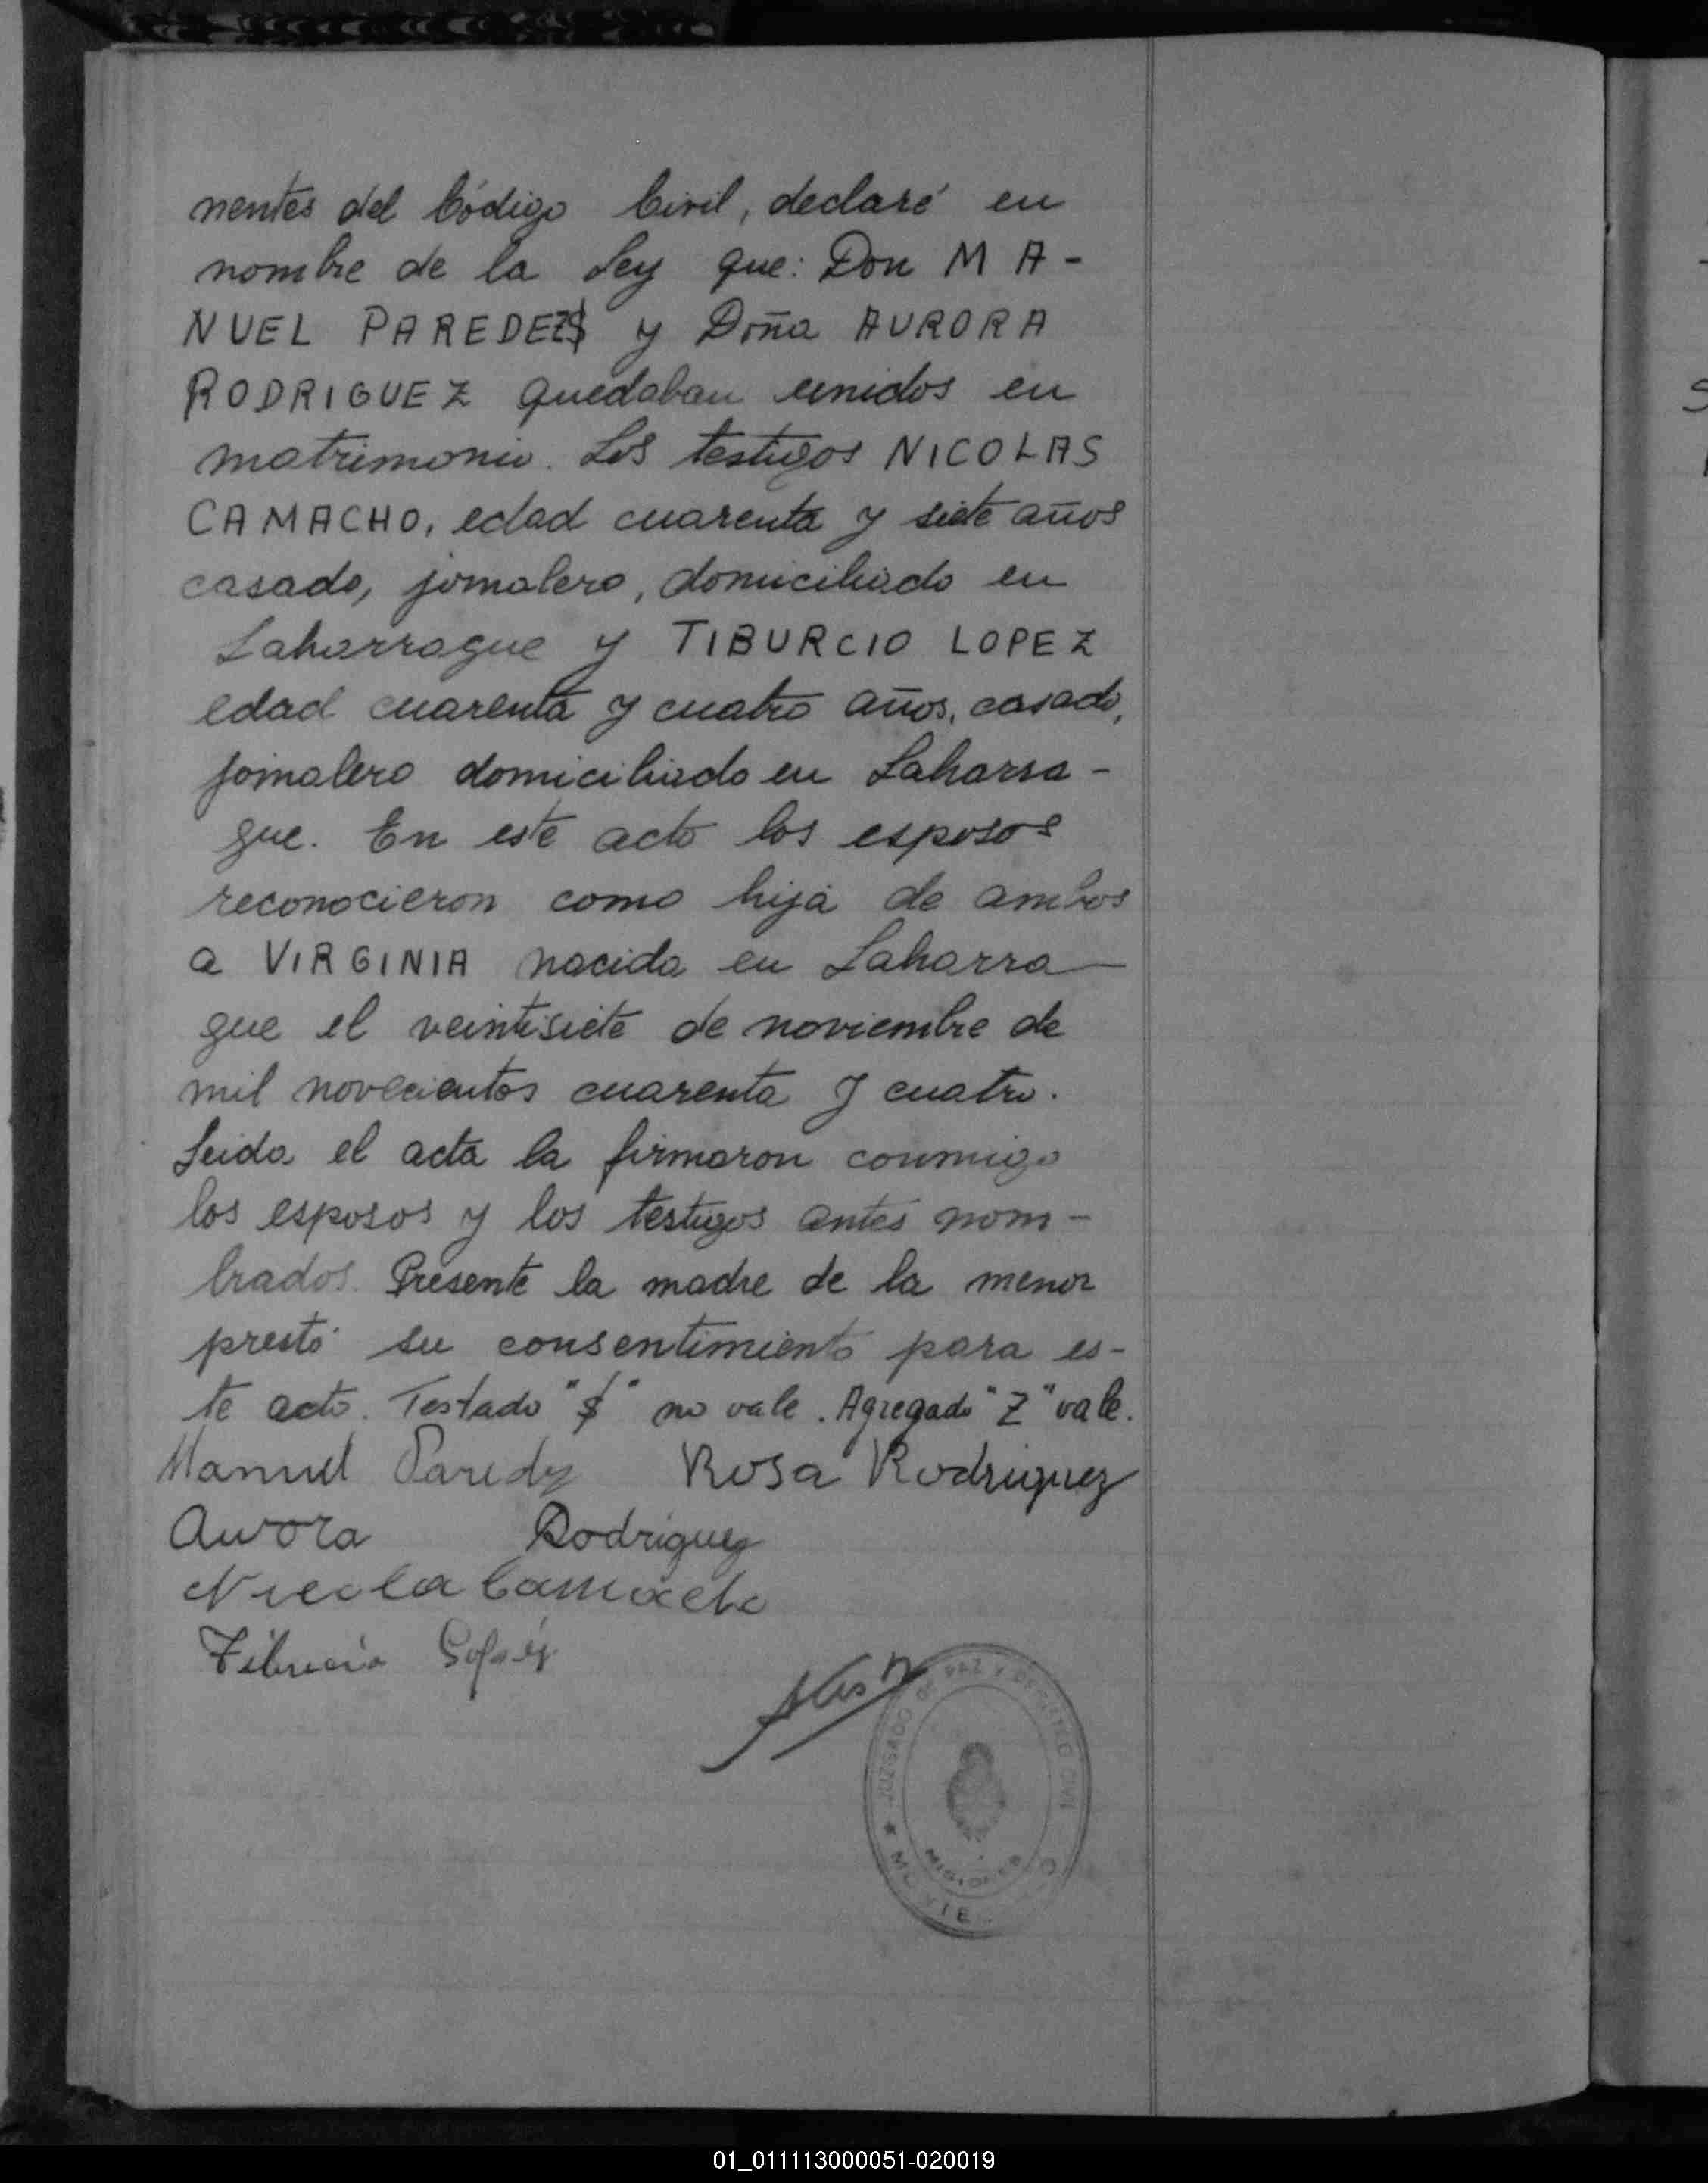 nentes del Código Civil, declaré en
nombre de la Ley que: Don MA-
NUEL PAREDEZS y Doña AURORA
RODRIGUEZ quedaban unidos en
matrimonio. Los testigos NICOLAS
CAMACHO, edad cuarenta y siete años
casado, jornalero, domiciliado en
Laharrague y TIBURCIO LOPEZ
edad cuarenta y cuatro años, casado,
jornalero domiciliado en Laharra-
gue. En este acto los esposos
reconocieron como hija de ambos
a VIRGINIA nacida en Laharra-
gue el veintisiete de noviembre de
mil novecientos cuarenta y cuatro.
Leida el acta la firmaron conmigo
los esposos y los testigos antes nom-
brados. Presente la madre de la menor
prestó su consentimiento para es-
te acto. Testado "S" no vale. Agregado "Z" vale.
Manuel Paredez Rosa Rodriguez
Aurora Rodriguez
Nicola Camacho
Tiburcio Lopez
JUZGADO DE PAZ Y REGISTRO CIVIL
MISIONES
01_011113000051-020019